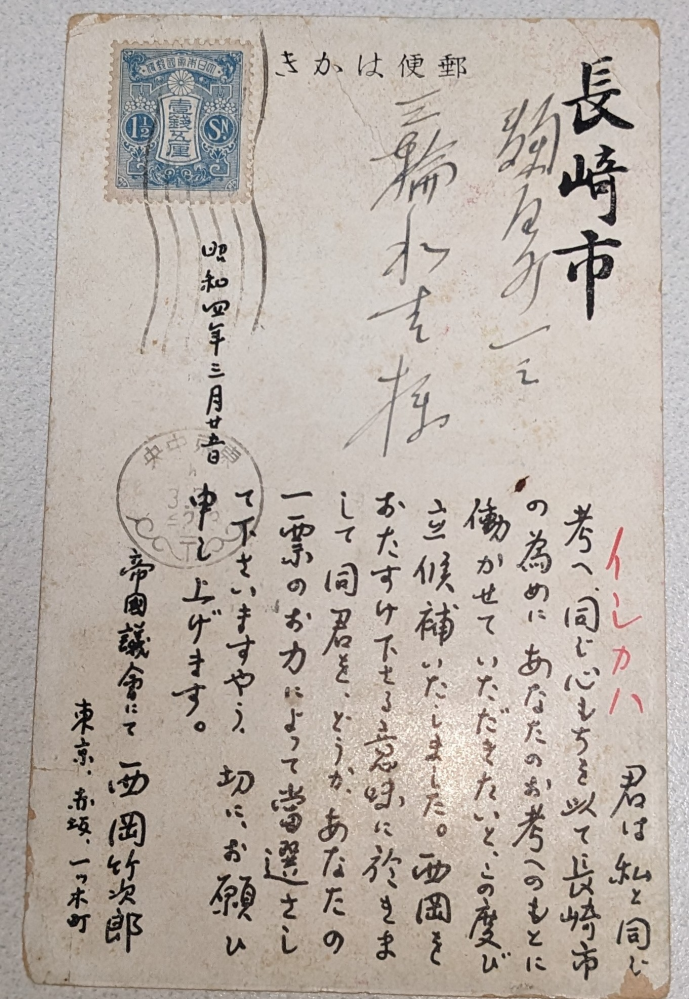 郵便はかき
大日本帝國郵便
壹錢五厘
1½ Sn
長崎市
三輪和吉様
昭和四年三月廿五日
東京中央
イシカハ
君は私と同じ
考へ、同じ心もちを以て長崎市
の為めに あなたのお考へのもとに
働かせていただきたいと、この度び
立候補いたしました。西岡を
おたすけ下さる意味に於きま
して同君を、どうか、あなたの
一票のお力によって當選さし
て下さいますやう、切に、お願ひ
申し上げます。
帝國議會にて 西岡竹次郎
東京、赤坂、一ツ木町